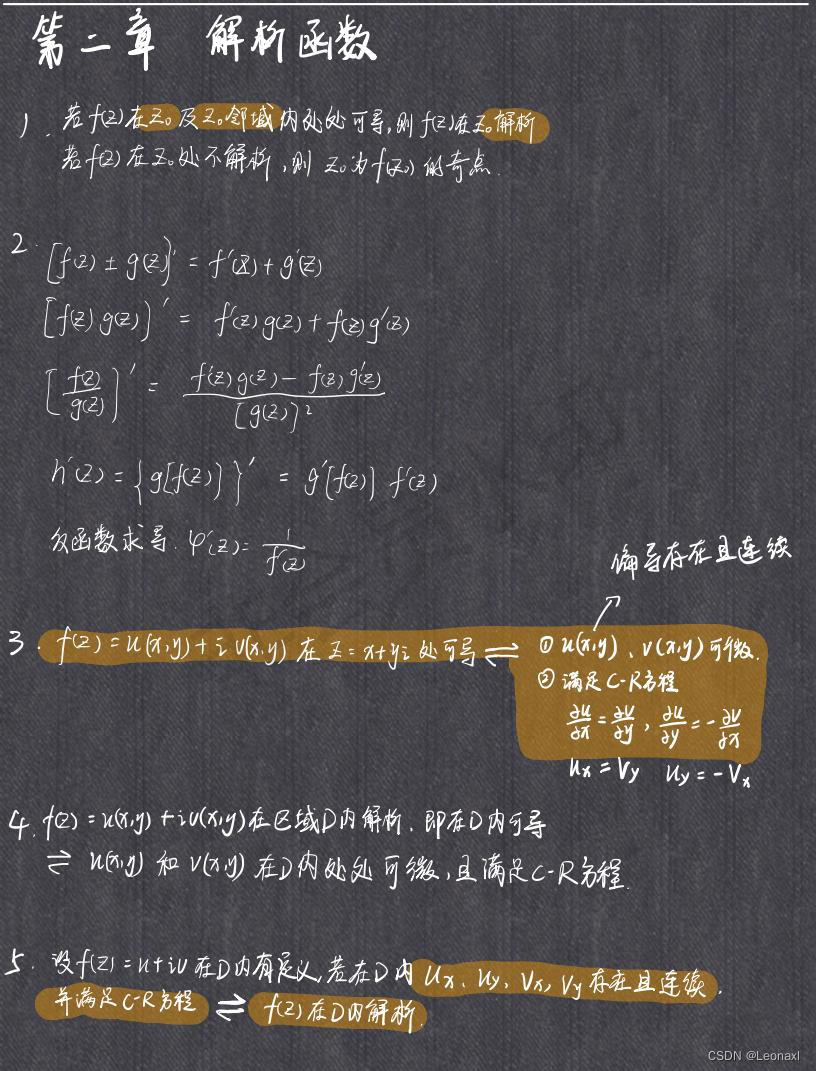 第二章 解析函数
1. 若f(z)在z₀及z₀邻域内处处可导,则f(z)在z₀解析
若f(z)在z₀处不解析,则z₀为f(z₀)的奇点.
2. [f(z)±g(z)]' = f'(z)+g'(z)
[f(z)g(z)]' = f'(z)g(z)+f(z)g'(z)
[f(z)/g(z)]' = (f'(z)g(z)-f(z)g'(z))/[g(z)]²
h'(z) = {g[f(z)]}' = g'[f(z)] f'(z)
反函数求导. φ'(z)= 1/f'(z)
偏导存在且连续
3. f(z)=u(x,y)+i v(x,y) 在 z=x+yi 处可导 ⇌ ① u(x,y)、v(x,y)可微.
② 满足C-R方程
∂u/∂x=∂v/∂y, ∂u/∂y=-∂v/∂x
ux=vy uy=-vx
4. f(z)=u(x,y)+iv(x,y)在区域D内解析.即在D内可导
⇌ u(x,y)和v(x,y)在D内处处可微,且满足C-R方程.
5. 设f(z)=u+iv在D内有定义,若在D内ux、uy、vx,vy存在且连续,
并满足C-R方程 ⇌ f(z)在D内解析.
CSDN @Leonaxl